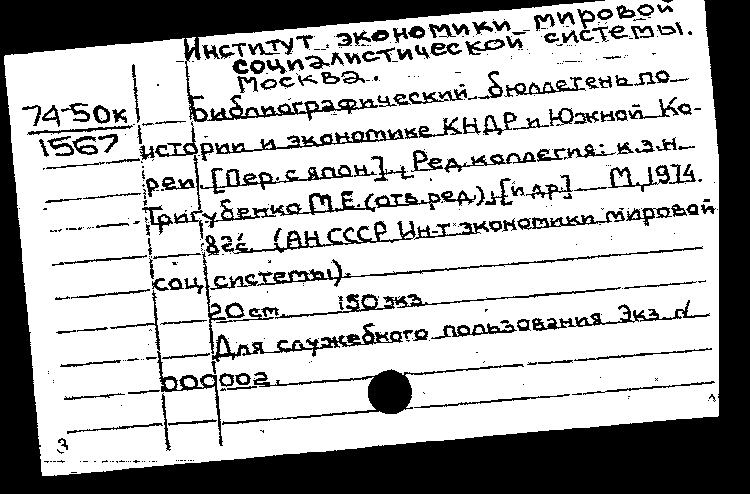 Институт экономики мировой
социалистической системы.
Москва.
74-50к
1567
Библиографический бюллетень по
истории и экономике КНДР и Южной Ко-
реи. [Пер. с япон.]. Ред. коллегия: к.э.н.
Тригубенко М.Е. (отв. ред.), [и др.] М., 1974.
82с. (АН СССР. Ин-т экономики мировой
соц. системы).
20 см. 150 экз.
Для служебного пользования. Экз. №
000002.
3